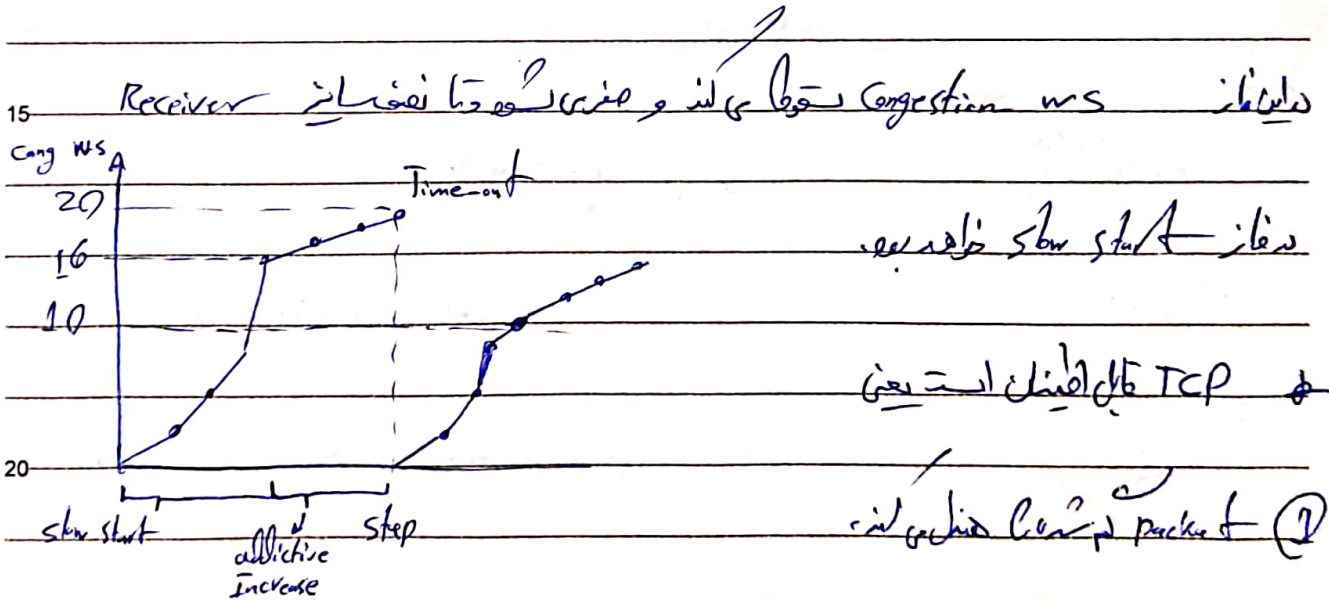 15 در این فاز Congestion ws سقوط می کند و صفر می شود و تا نصف سایز Receiver
Cong WS
Time-out
20
در فاز slow start خواهد بود.
16
10
* TCP قابل اطمینان است یعنی
20
① packet گم شده را هندل می کند.
slow start
addictive
Increase
Step